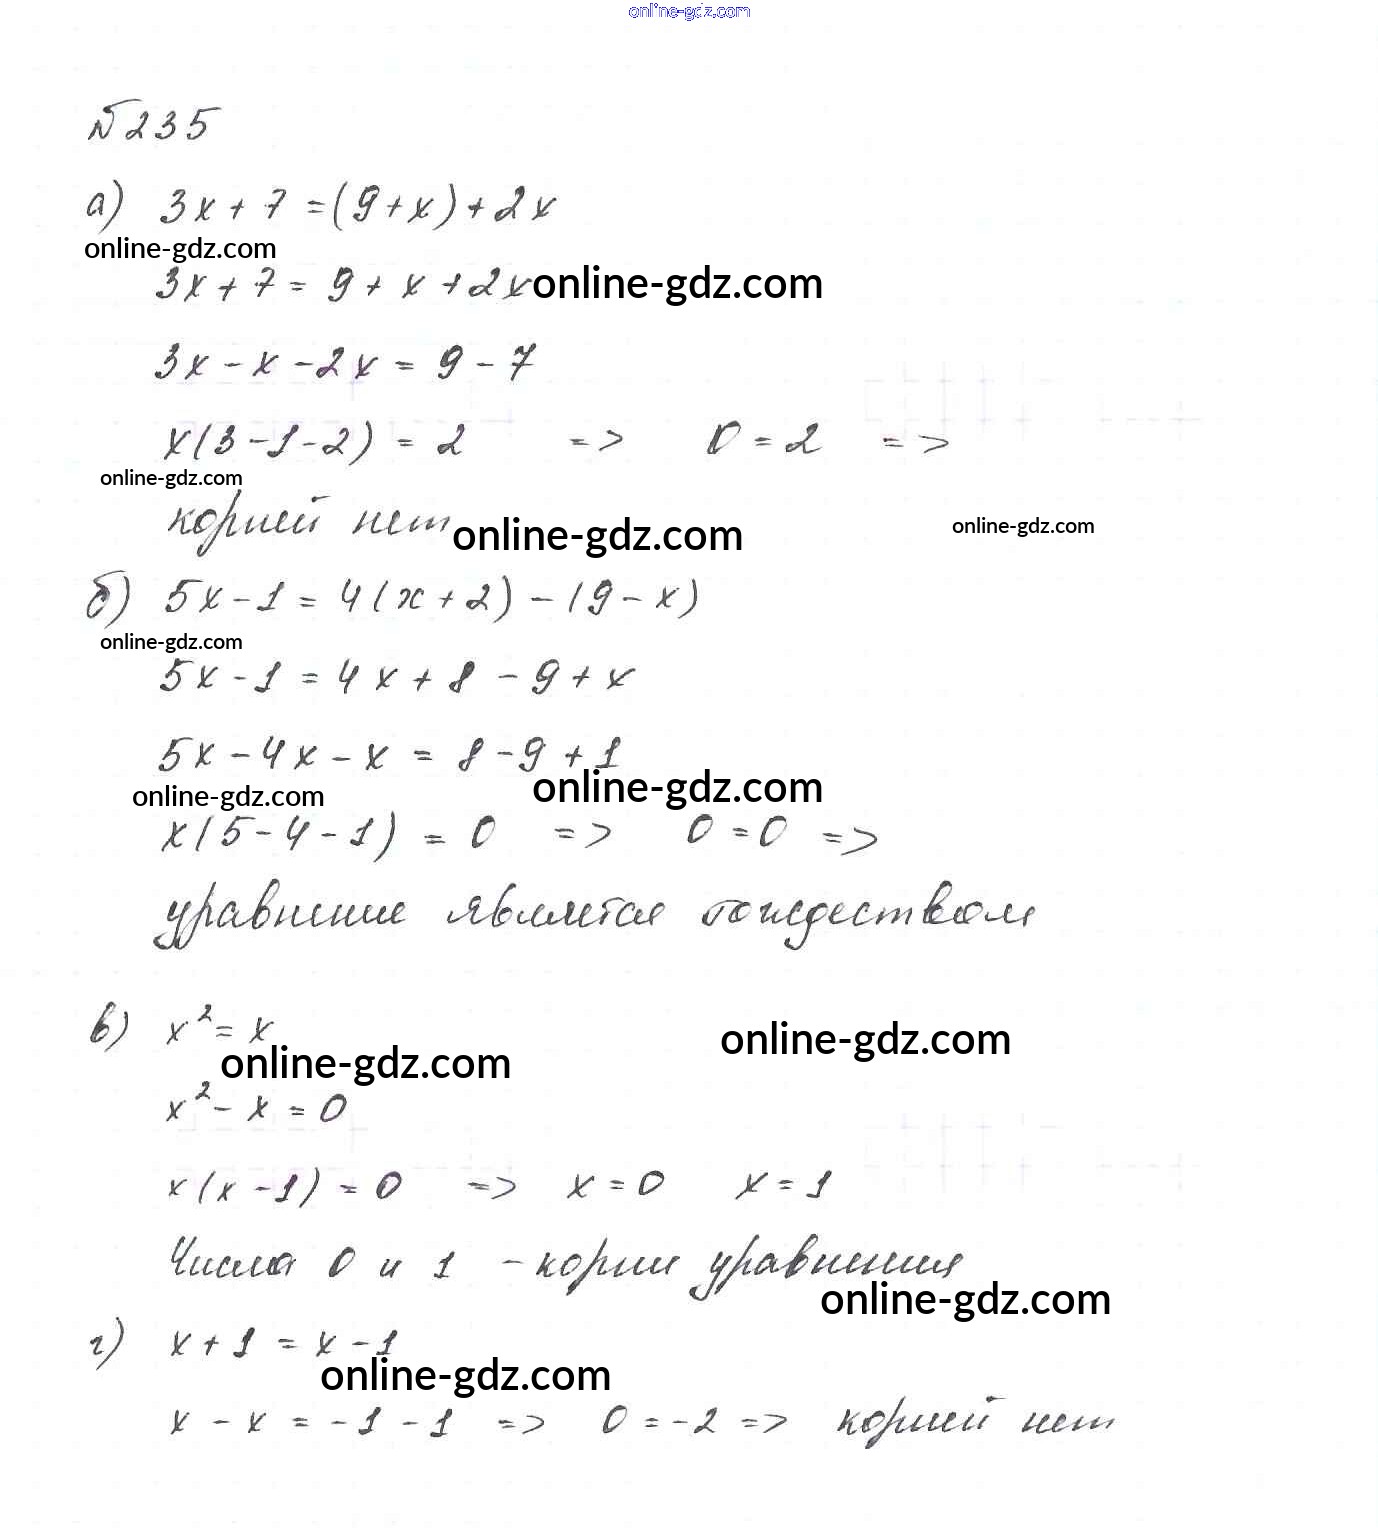 online-gdz.com
№235
а) 3x + 7 = (9 + x) + 2x
online-gdz.com
3x + 7 = 9 + x + 2x online-gdz.com
3x - x - 2x = 9 - 7
x(3 - 1 - 2) = 2 => 0 = 2 =>
online-gdz.com
корней нет online-gdz.com online-gdz.com
б) 5x - 1 = 4(x + 2) - (9 - x)
online-gdz.com
5x - 1 = 4x + 8 - 9 + x
5x - 4x - x = 8 - 9 + 1
online-gdz.com online-gdz.com
x(5 - 4 - 1) = 0 => 0 = 0 =>
уравнение является тождеством
в) x² = x
online-gdz.com online-gdz.com
x² - x = 0
x(x - 1) = 0 => x = 0 x = 1
Числа 0 и 1 - корни уравнения
online-gdz.com
г) x + 1 = x - 1
online-gdz.com
x - x = -1 - 1 => 0 = -2 => корней нет